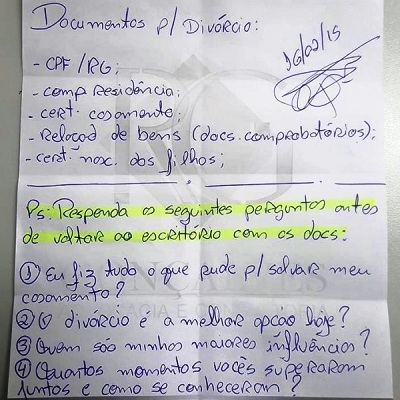 Documentos p/ Divórcio:
16/02/15
- CPF/RG;
- comp residência;
- cert. casamento;
- Relação de bens (docs. comprobatórios);
- cert. nasc. dos filhos;
Ps: Responda as seguintes perguntas antes
de voltar ao escritório com os docs:
① Eu fiz tudo o que pude p/ salvar meu
casamento?
② O divórcio é a melhor opção hoje?
③ Quem são minhas maiores influências?
④ Quantos momentos vocês superaram
juntos e como se conheceram?